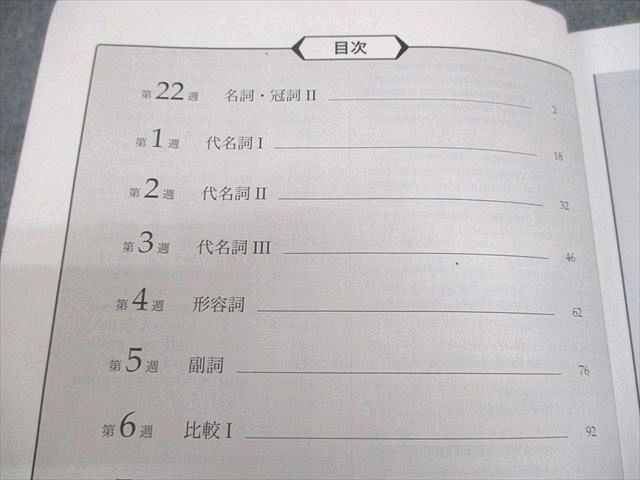 目次
第22週 名詞・冠詞 II 2
第1週 代名詞 I 18
第2週 代名詞 II 32
第3週 代名詞 III 46
第4週 形容詞 62
第5週 副詞 76
第6週 比較 I 92